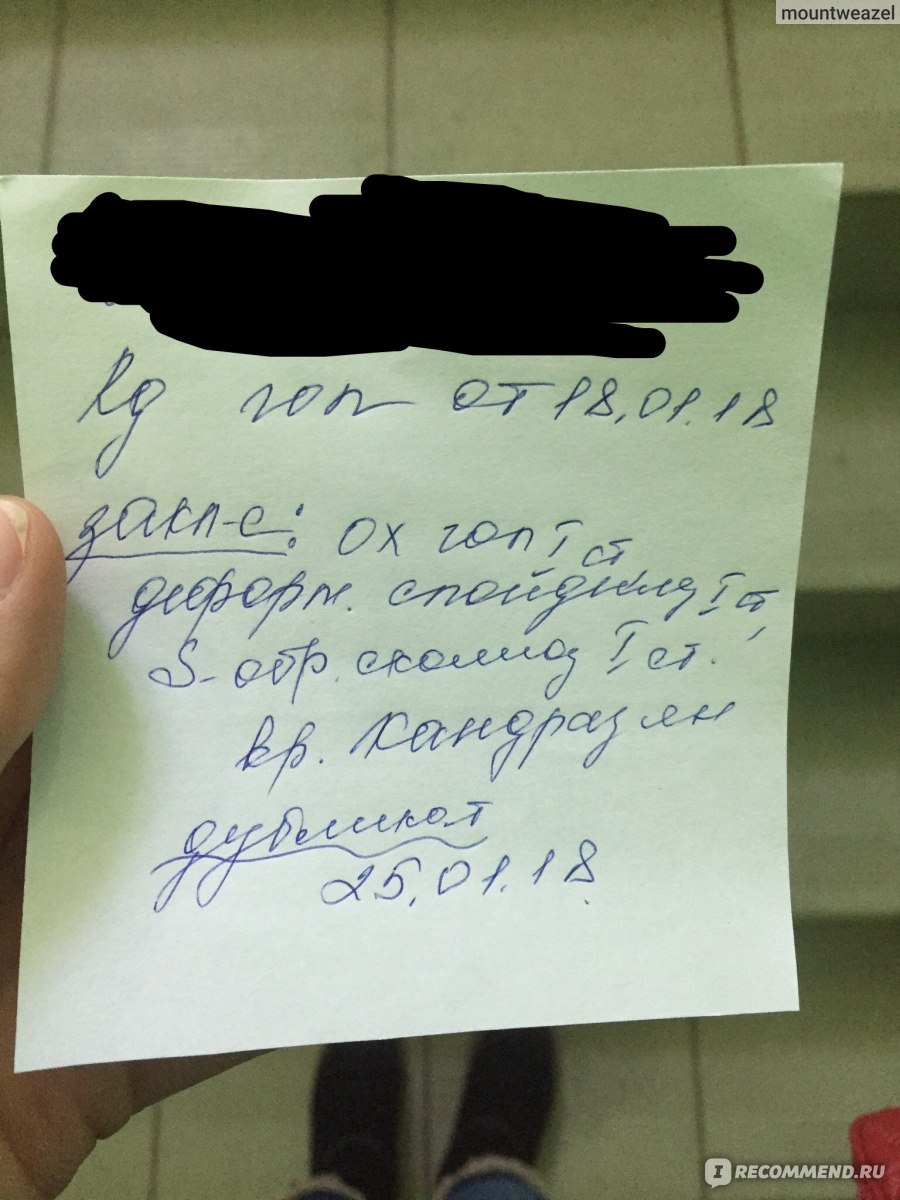 mountweazel
Rg гоп от 18.01.18
закл-е: ОХ гоп I ст
деформ. спондилез I ст
S-обр. сколиоз I ст.
вр. Хандразян
дубликат
25.01.18
IRECOMMEND.RU